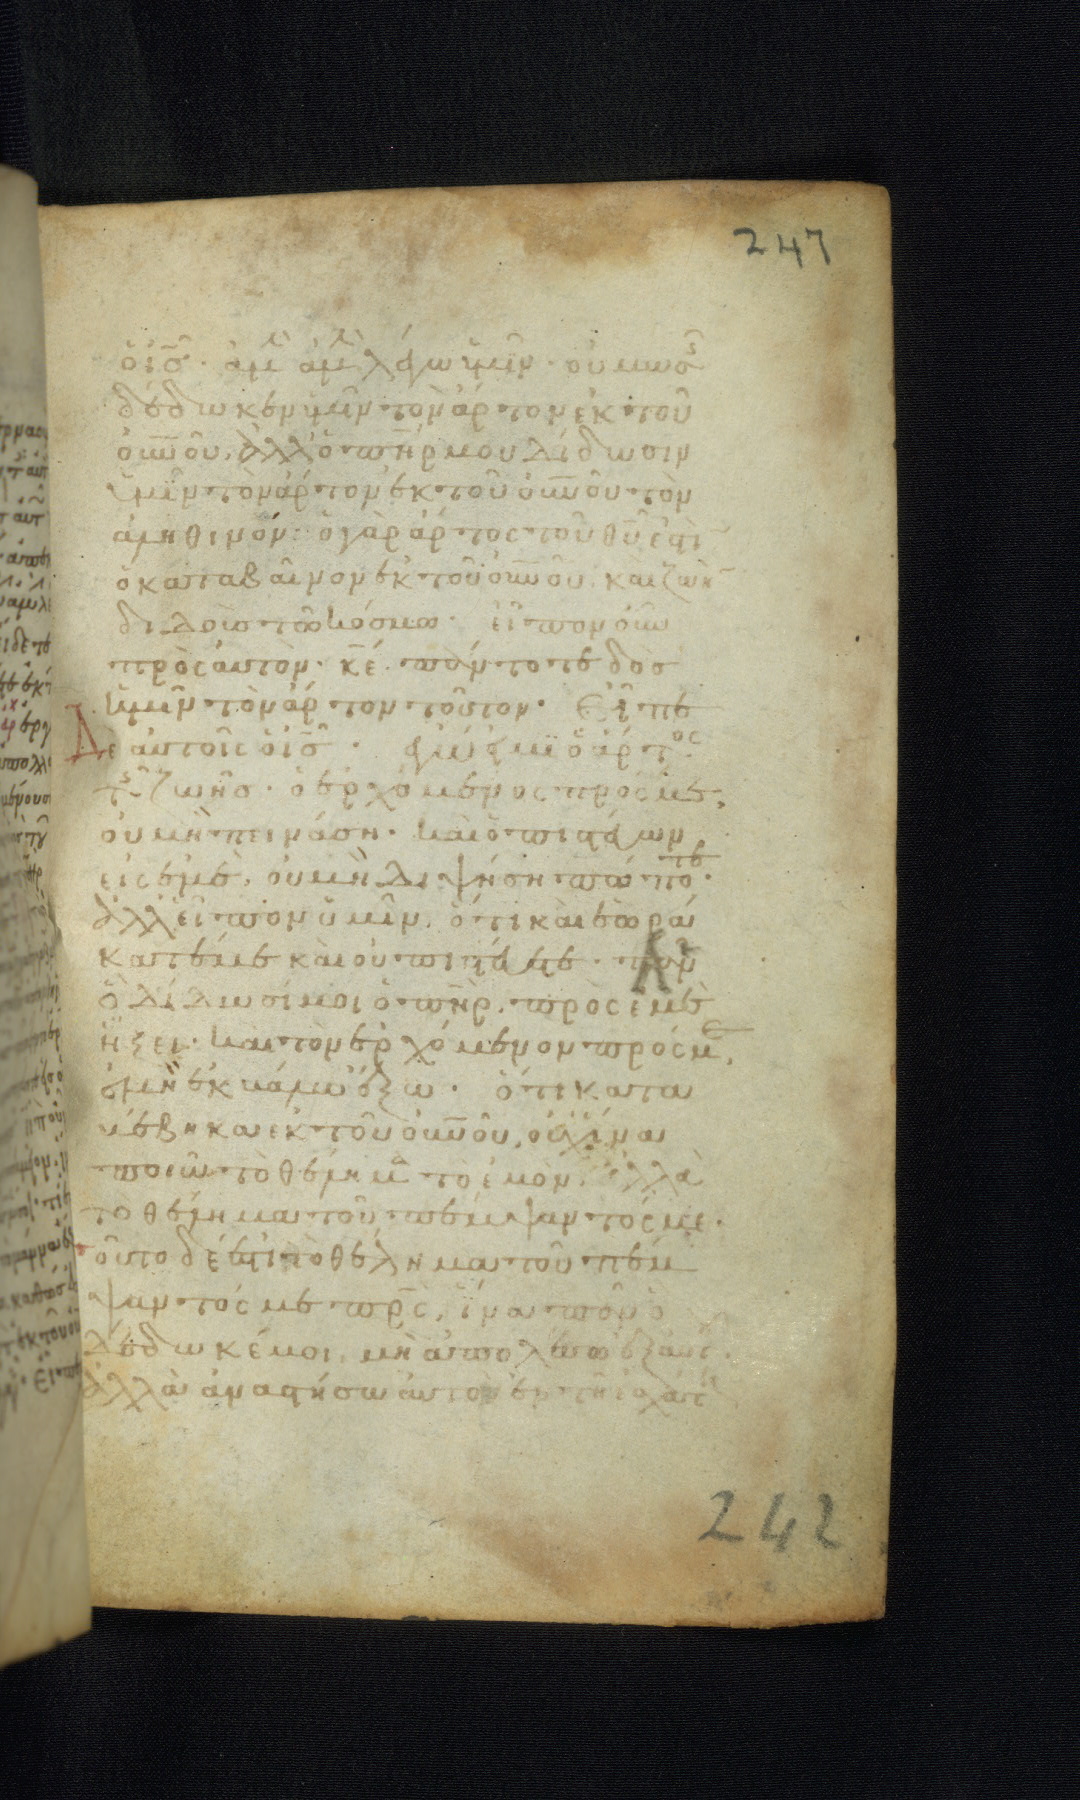 247
ὁ ἰ̅ς̅· ἀμὴν ἀμὴν λέγω ὑμῖν· οὐ μωσῆς
δέδωκεν ὑμῖν τὸν ἄρτον ἐκ τοῦ
ο̅υ̅ν̅ο̅υ̅, ἀλλ' ὁ π̅η̅ρ̅ μου δίδωσιν
ὑμῖν τὸν ἄρτον ἐκ τοῦ ο̅υ̅ν̅ο̅υ̅ τὸν
ἀληθινόν· ὁ γὰρ ἄρτος τοῦ θ̅υ̅ ἐστὶν
ὁ καταβαίνων ἐκ τοῦ ο̅υ̅ν̅ο̅υ̅ καὶ ζωὴν
διδοὺς τῶ κόσμω· εἶπον οὖν
πρὸς αὐτὸν· κ̅ε̅ πάντοτε δὸς
ἡμῖν τὸν ἄρτον τοῦτον· Εἶπε
Δὲ αὐτοῖς ὁ ἰ̅ς̅· ἐγώ εἰμι ὁ ἄρτος
τῆς ζωῆς· ὁ ἐρχόμενος πρός με,
οὐ μὴ πεινάση· καὶ ὁ πιστεύων
εἰς ἐμὲ, οὐ μὴ διψήση πώποτε·
ἀλλ' εἶπον ὑμῖν, ὅτι καὶ ἑωρά
κατέ με καὶ οὐ πιστεύετε· πᾶν
ὃ δίδωσί μοι ὁ π̅η̅ρ̅, πρὸς ἐμὲ
ἥξει· καὶ τὸν ἐρχόμενον πρός με,
οὐ μὴ ἐκβάλω ἔξω· ὅτι κατα
βέβηκα ἐκ τοῦ ο̅υ̅ν̅ο̅υ̅, οὐχ ἵνα
ποιῶ τὸ θέλημα τὸ ἐμὸν, ἀλλὰ
τὸ θέλημα τοῦ πέμψαντός με·
τοῦτο δέ ἐστι τὸ θέλημα τοῦ πέμ
ψαντός με π̅ρ̅ς̅, ἵνα πᾶν ὃ
δέδωκέ μοι, μὴ ἀπολέσω ἐξ αὐτοῦ·
ἀλλὰ ἀναστήσω αὐτὸ ἐν τῆ ἐσχάτη
242